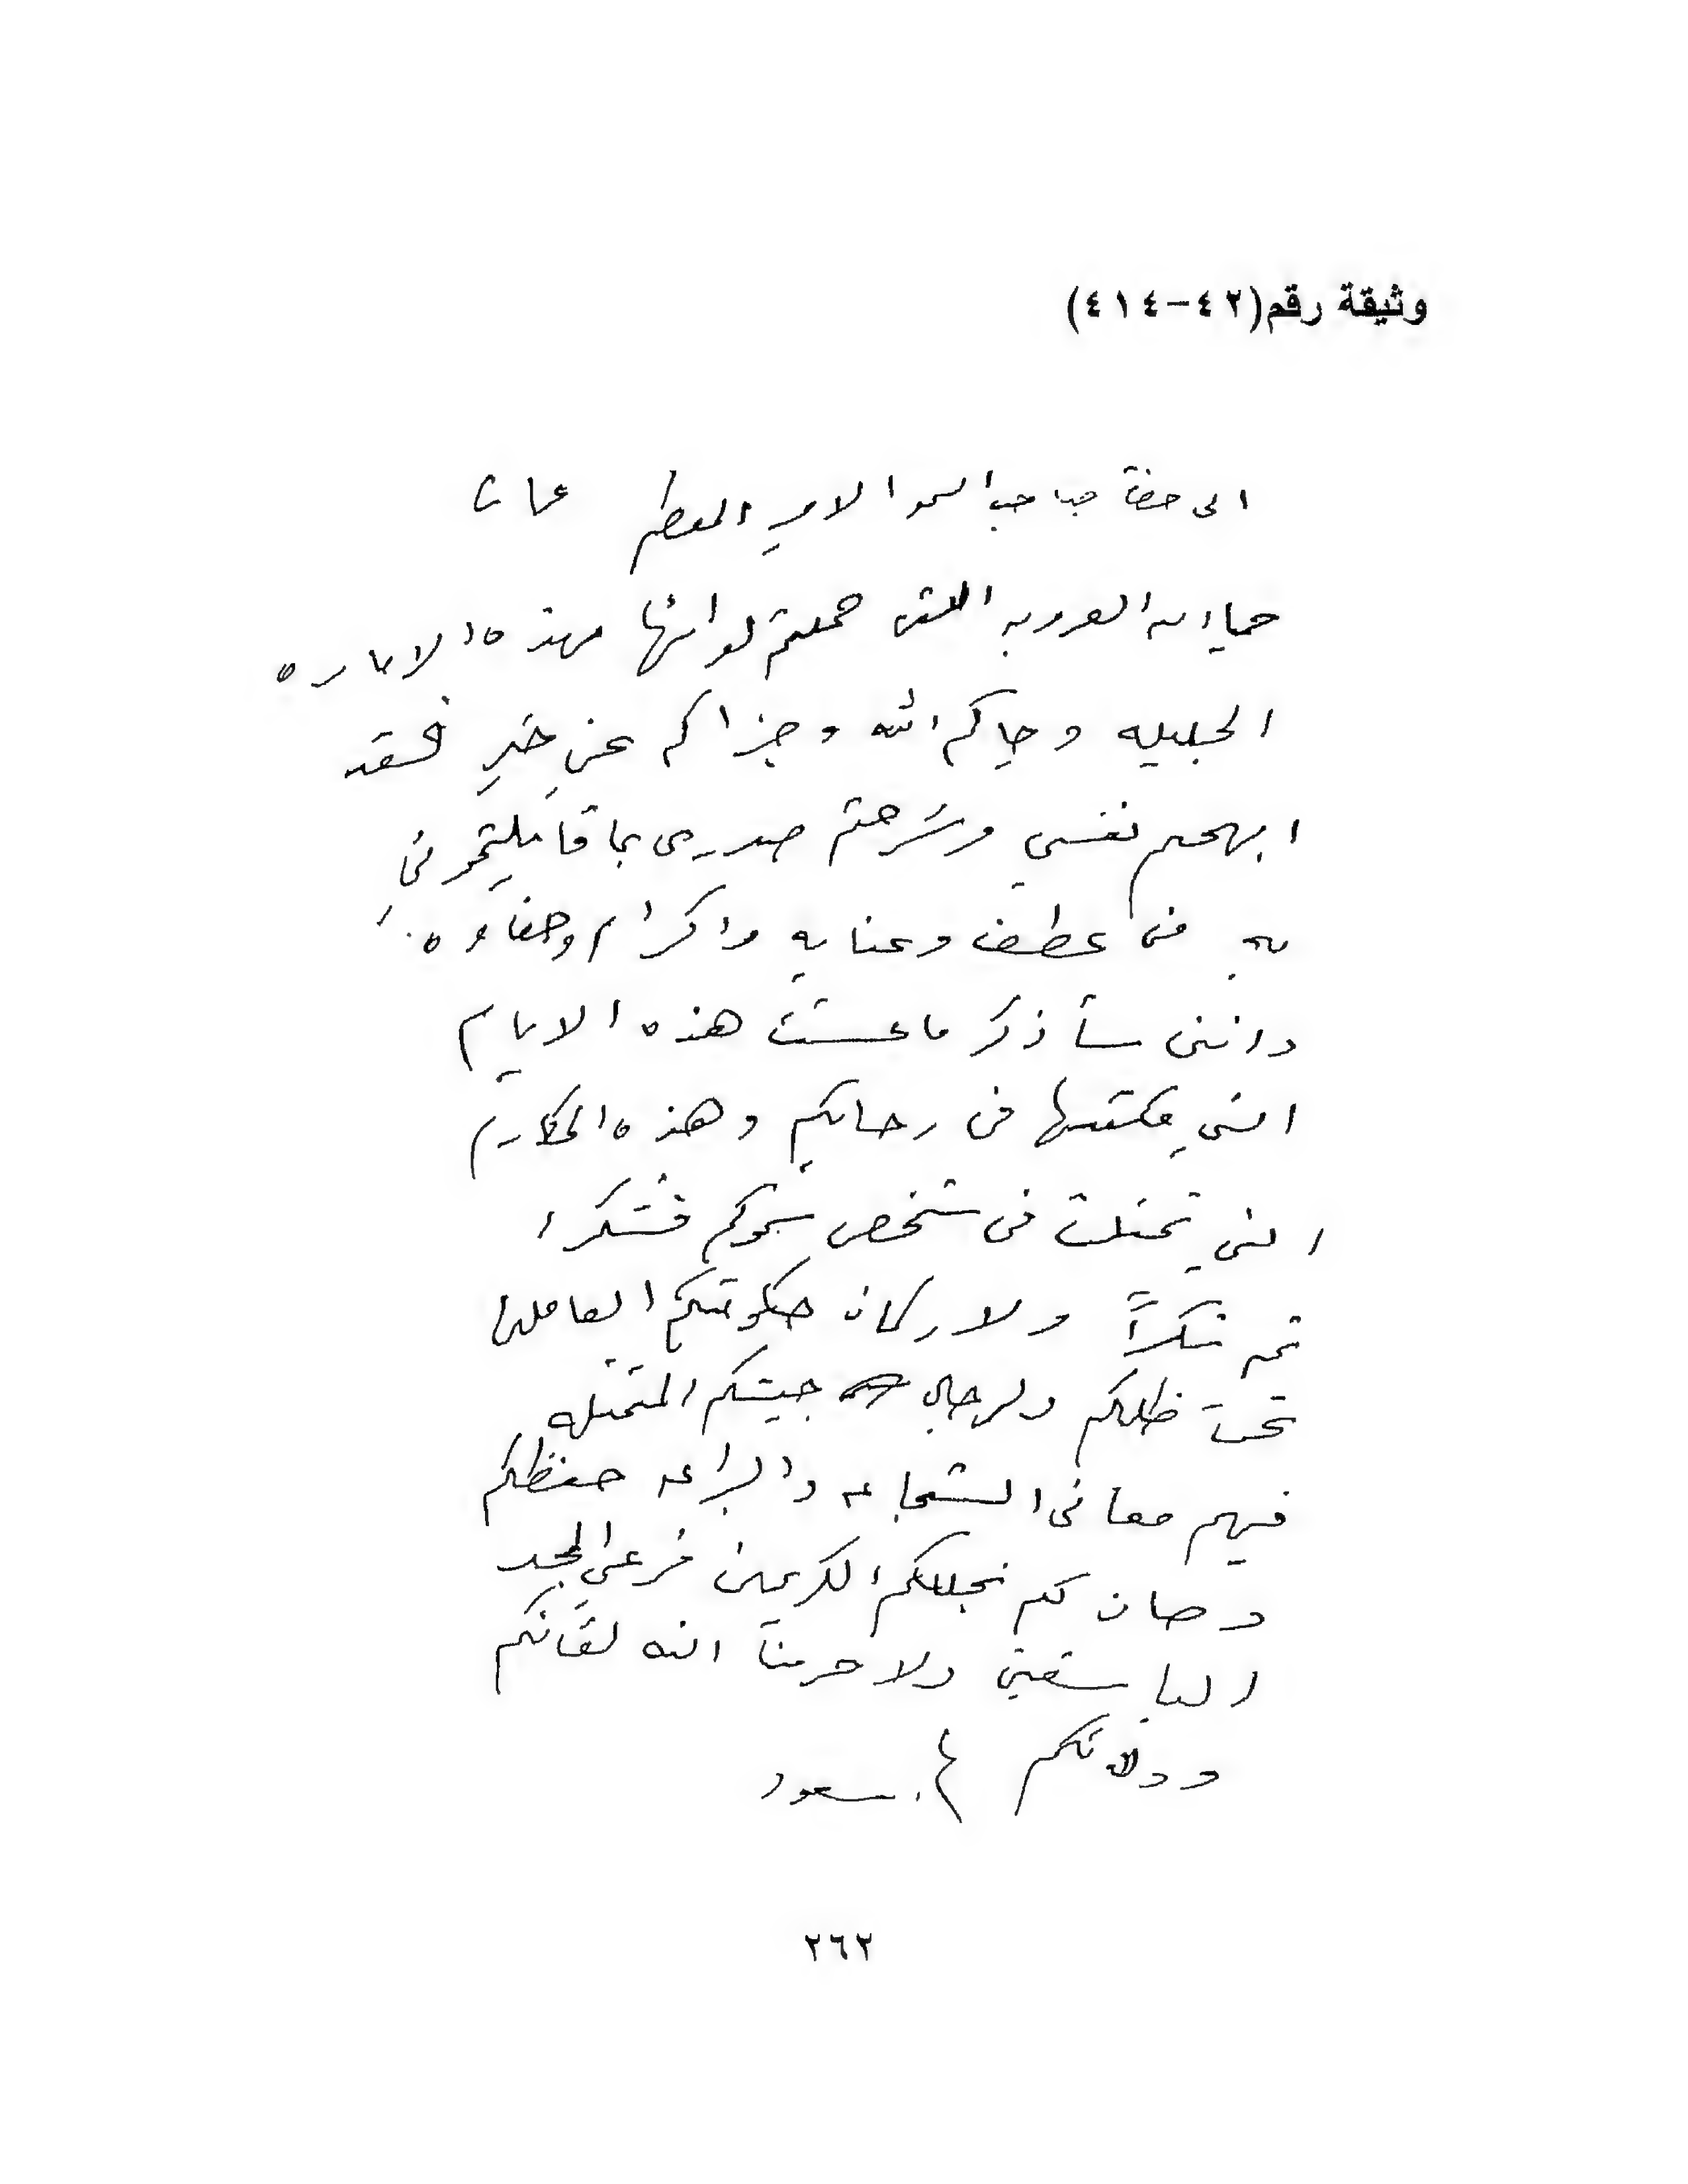 وثيقة رقم(٤٢-٤١٤)
الى حضرة صاحب السمو الامير المعظم عمان
العروبه التى حملتم لوائها بهذه الاماره
الجليله وحياكم الله وجزاكم عنى خير فلقد
ابهجتم نفسي وشرحتم صدرى بما قابلتمونى
به من عطف وعنايه واكرام وحفاوه.
واننى سأذكر ما عشت هذه الايام
التي مكثتها فى رحابكم وهذه المكارم
التي تمثلت فى شخص سموكم فشكرا
ثم شكراً ولاركان حكومتكم العاملين
تحت ظلكم ولرجال جيشكم المتمثله
فيهم معانى الشجاعه والبراعه حفظكم
وصان لكم نجليكم الكريمين فرعي المجد
الباسقين ولا حرمنا الله لقائكم
سعود
٢٦٢